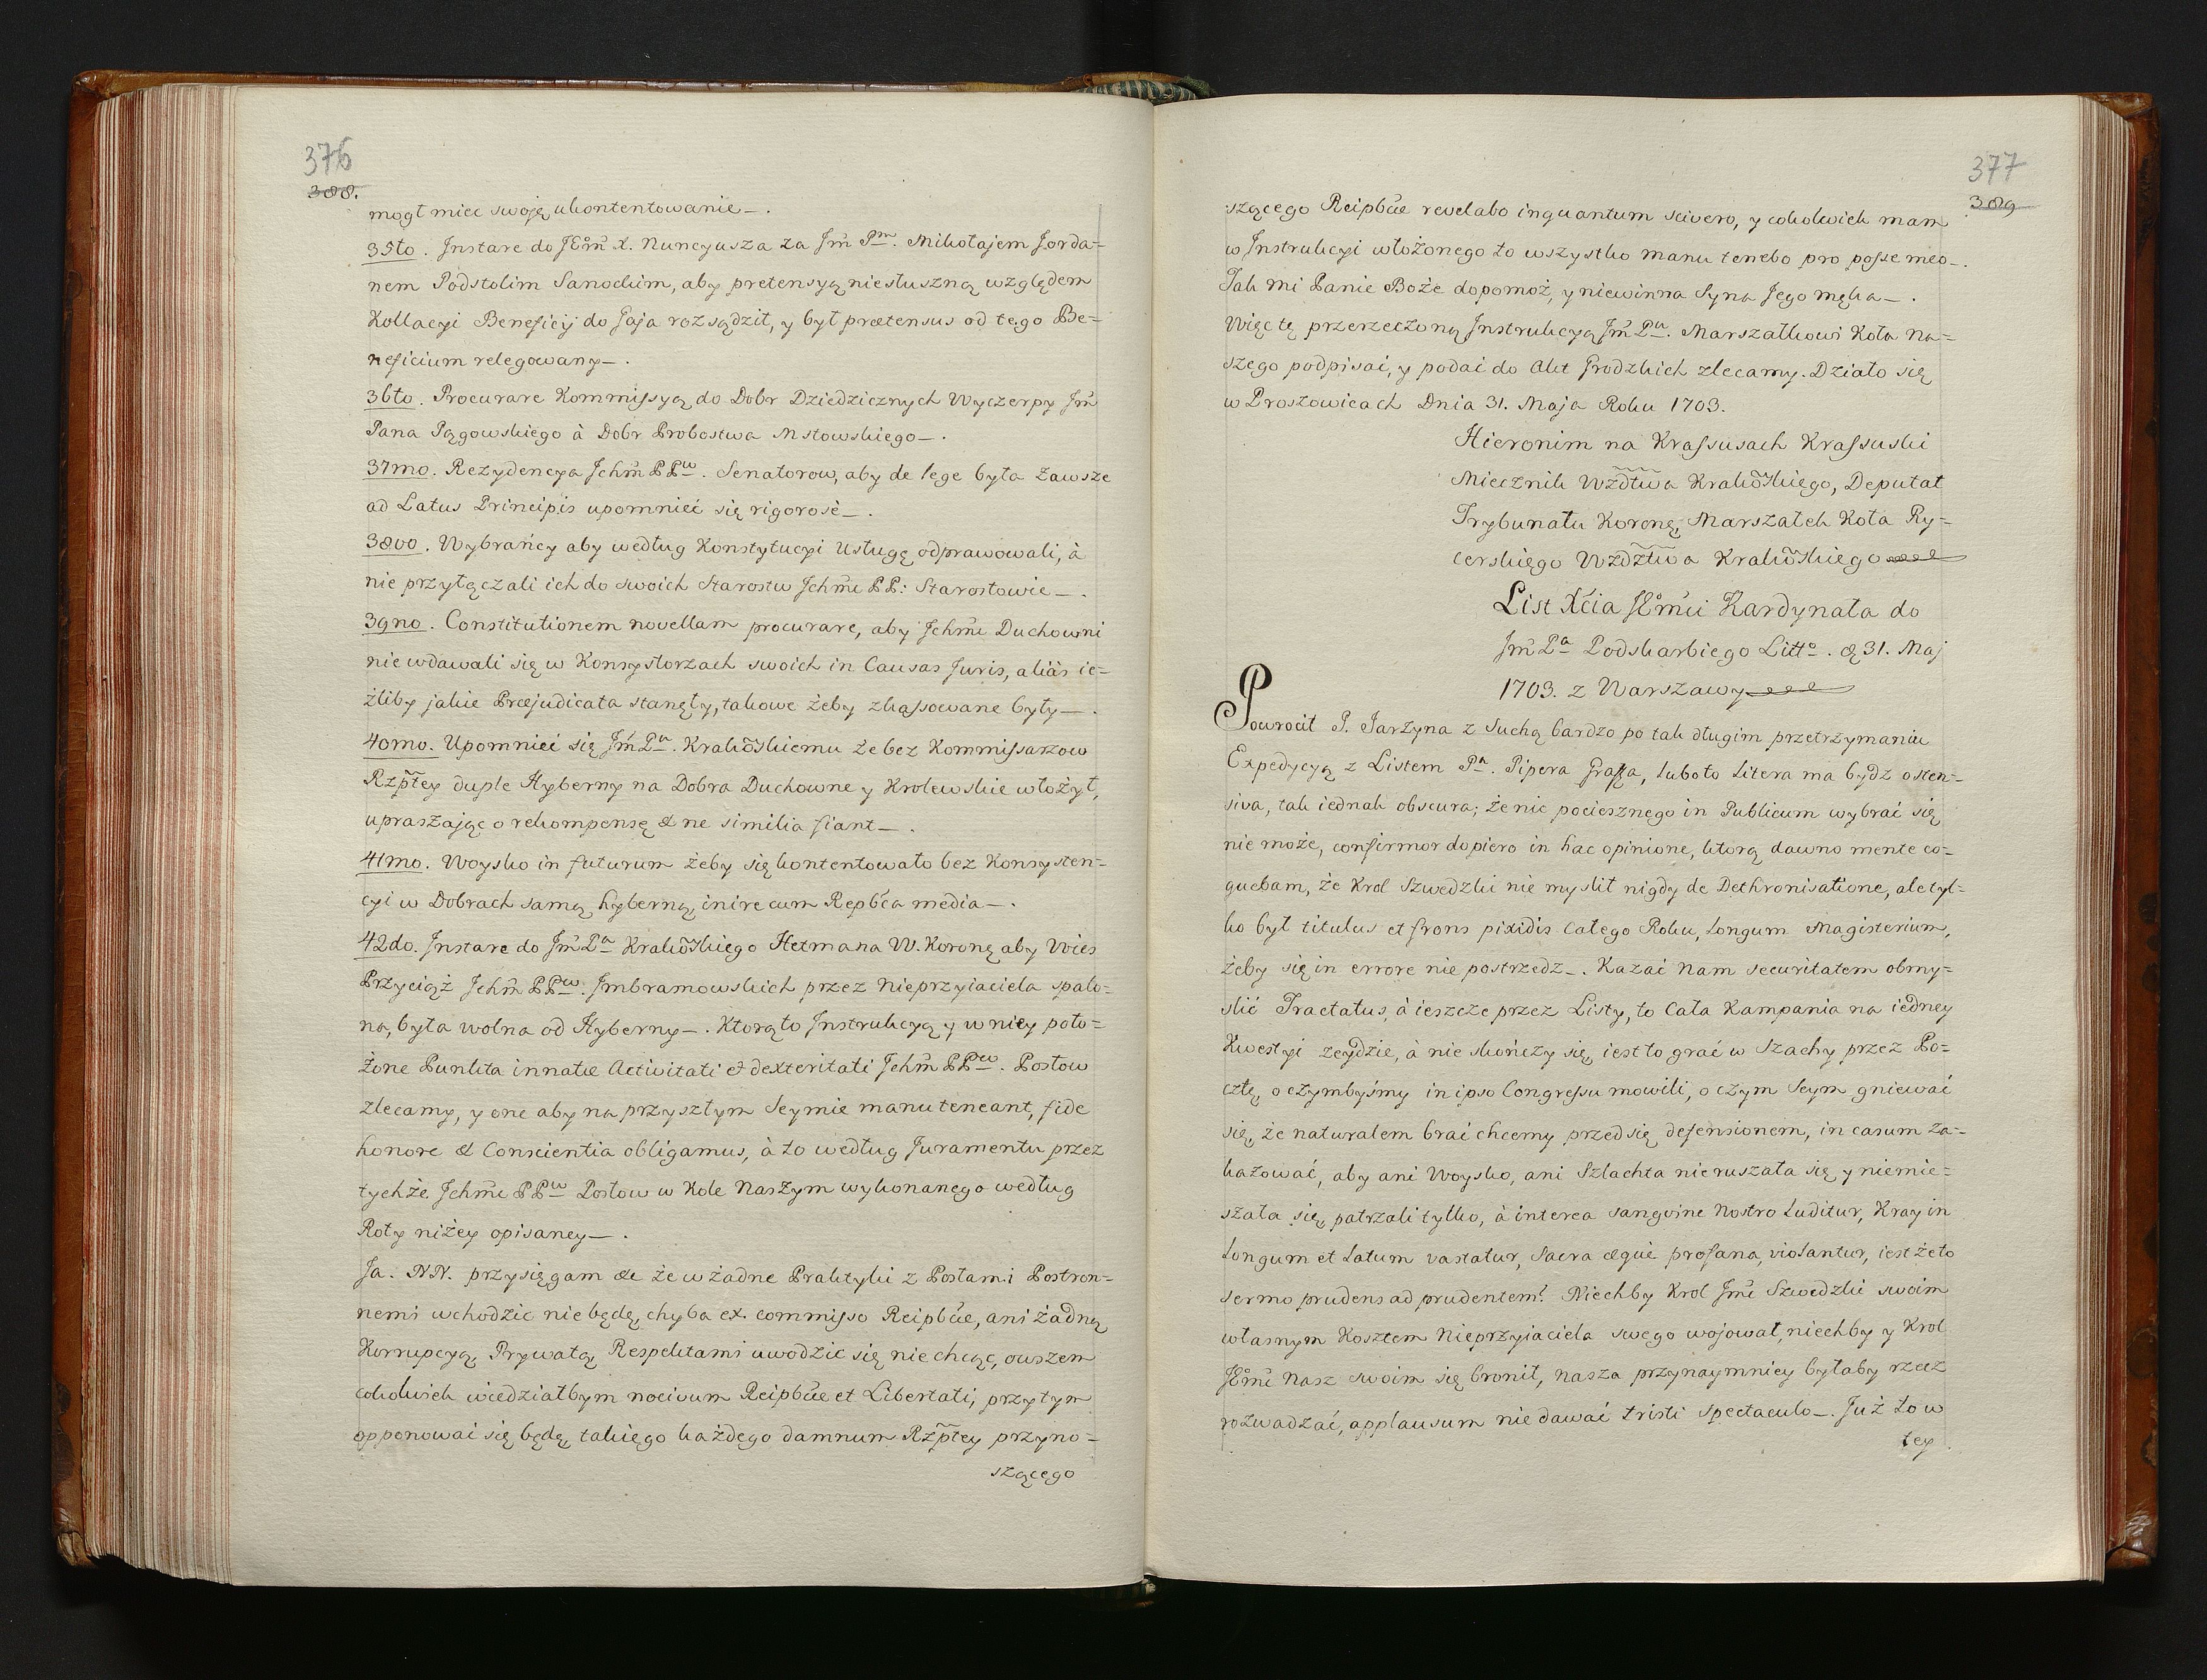 376
388.
mogł miec swoję ukontentowanie—.
35to. Instare do JEm̃ X. Nuncyusza za Jm̃ Pm. Mikołajem Jorda=
nem Podstolim Sanockim, aby pretensyą niesłuszną względem
Kollacyi Beneficij do Gaja rozsądził, y był prætensus od tego Be=
neficium relegowany—.
36to. Procurare Kommissyą do Dobr Dziedzicznych Wyczerpy Jm̃
Pana Pągowskiego à Dobr Probostwa Mstowskiego—.
37mo. Rezydencya Ichm̃ PPw. Senatorow, aby de lege była zawsze
ad Latus Principis upomnieć się rigorosè—.
38vo. Wybrańcy aby według Konstytucyi Usługę odprawowali, à
nie przyłączali ich do swoich Starostw Ichm̃c PP: Starostowie—.
39no. Constitutionem novellam procurare, aby Ichm̃c Duchowni
nie wdawali się w Konsystorzach swoich in Causas Juris, aliàs ie=
żliby jakie Præjudicata stanęły, takowe żeby zkassowane były—.
40mo. Upomnieć się Jm̃ Pu. Krakõskiemu że bez Kommissarzow
Rzp̃tey duple Hyberny na Dobra Duchowne y Krolewskie włożył,
upraszając o rekompensę & ne similia fiant—.
41mo. Woysko in futurum żeby się kontentowało bez Konsysten=
cyi w Dobrach samą hyberną, inire cum Repb̃ca media—.
42do. Instare do Jm̃ Pa Krakõskiego Hetmana W. Koronę aby Wies
Przyciąż Ichm̃ PPw. Imbramowskich przez nieprzyiaciela spalo=
na, była wolna od Hyberny—. Ktorąto Instrukcyą y w niey poło=
żone Punkta innatæ Activitati & dexteritati Ichm̃ PPw. Posłow
zlecamy, y one aby na przyszłym Seymie manuteneant, fide
honore & Conscientia obligamus, à to według Juramentu przez
tychże Ichm̃c PPw Posłow w Kole Naszym wykonanego według
Roty niżey opisaney—.
Ja. NN. przysięgam &c że w żadne Praktyki z Posłami Postron=
nemi wchodzic nie będę, chyba ex commisso Reipb̃cæ, ani żadną
Korrupcyą, Prywatą, Respektami uwodzic się nie chcąc, owszem
cokolwiek wiedziałbym nocivum Reipb̃cæ et Libertati, przytym
opponowai się będę takiego każdego damnum Rzp̃tey przyno=
szącego
377
389
szącego Reipb̃cæ revelabo inquantum scivero, y cokolwiek mam
w Instrukcyi włożonego to wszystko manu tenebo pro posse meo—.
Tak mi Panie Boże dopomoż, y niewinna Syna Jego męka—.
Więc tę przerzeczoną Instrukcyą Jm̃ Pu. Marszałkowi Koła Na=
szego podpisai, y podai do Akt Grodzkich zlecamy. Działo się
w Proszowicach Dnia 31. Maja Roku 1703.
Hieronim na Krassusach Krassuski
Miecznik Wzdtwa Krakõskiego, Deputat
Trybunału Koronę, Marszałek Koła Ry=
cerskiego Wzdztwa Krakõskiego
List Xcia JEm̃ci Kardynała do
Jm̃ Pa Podskarbiego Litto. d. 31. Maj
1703. z Warszawy
Powrocił P. Jarzyna z Suchą bardzo po tak długim przetrzymaniu
Expedycyą z Listem Pa. Pipera Graffa, luboto litera ma bydz osten=
siva, tak iednak obscura; że nic pociesznego in Publicum wybrai się
nie może, confirmor dopiero in hac opinione, ktorą dawno mente co=
quebam, że Krol Szwedzki nie myslił nigdy de Dethronisatione, ale tyl=
ko był titulus et frons pixidis całego Roku, Longum Magisterium,
żeby się in errore nie postrzedz—. Kazać Nam securitatem obmy=
slić Tractatus, à ieszcze przez Listy, to Cała Kampania na iedney
Kwestyi zeydzie, à nie skończy się, iest to grać w Szachy przez Po=
cztę, o czymbyśmy in ipso Congressu mowili, o czym Seym gniewać
się, że naturalem brai chcemy przed się defensionem, in casum za=
kazować, aby ani Woysko, ani Szlachta nie ruszała się, y niemie=
szała się, patrzali tylko, à interea sangvine Nostro Luditur, Kray in
Longum et Latum vastatur, Sacra æquè profana, violantur, iest że to
sermo prudens ad prudentem? Niechby Krol Jm̃c Szwedzki swoim
własnym Kosztem Nieprzyiaciela swego wojował, niechby y Krol
JEm̃c Nasz swoim się bronił, nasza przynaymniey byłaby rzecz
rozwadzać, applausum nie dawać tristi spectaculo—. Już to w
tey